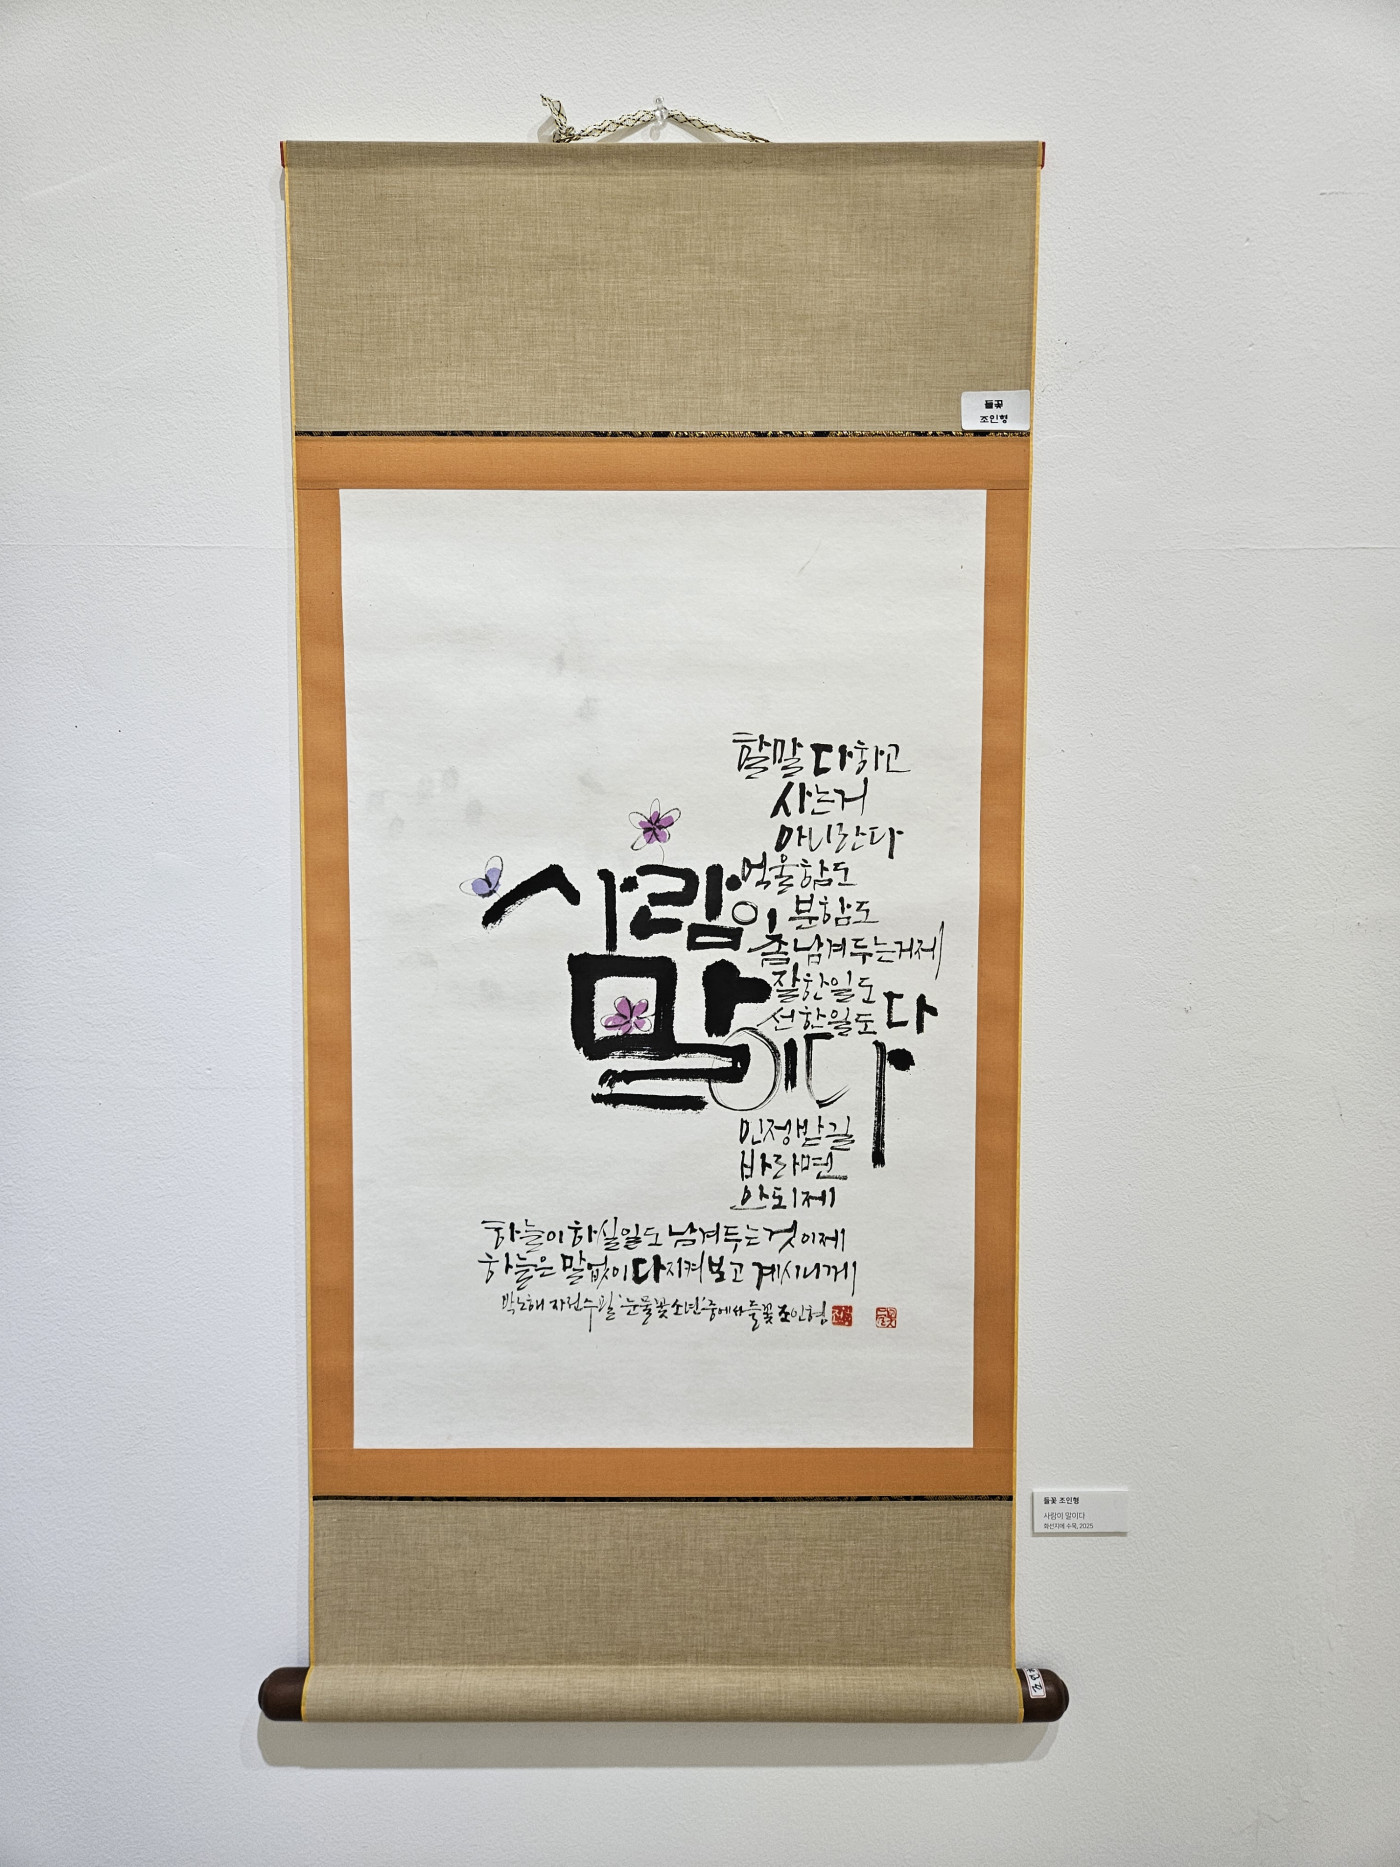 들꽃
조인형
할말 다하고
사는거
아니란다
억울함도
분함도
좀 남겨두는거제
잘한일도
선한일도 다
사람이
말이다
인정받길
바라면
안되제
하늘이 하실일도 남겨두는것이제
하늘은 말없이 다 지켜보고 계시니께
박노해 자전수필 '눈물꽃 소년' 중에서 들꽃 조인형
들꽃 조인형
사람이 말이다
화선지에 수묵, 2025